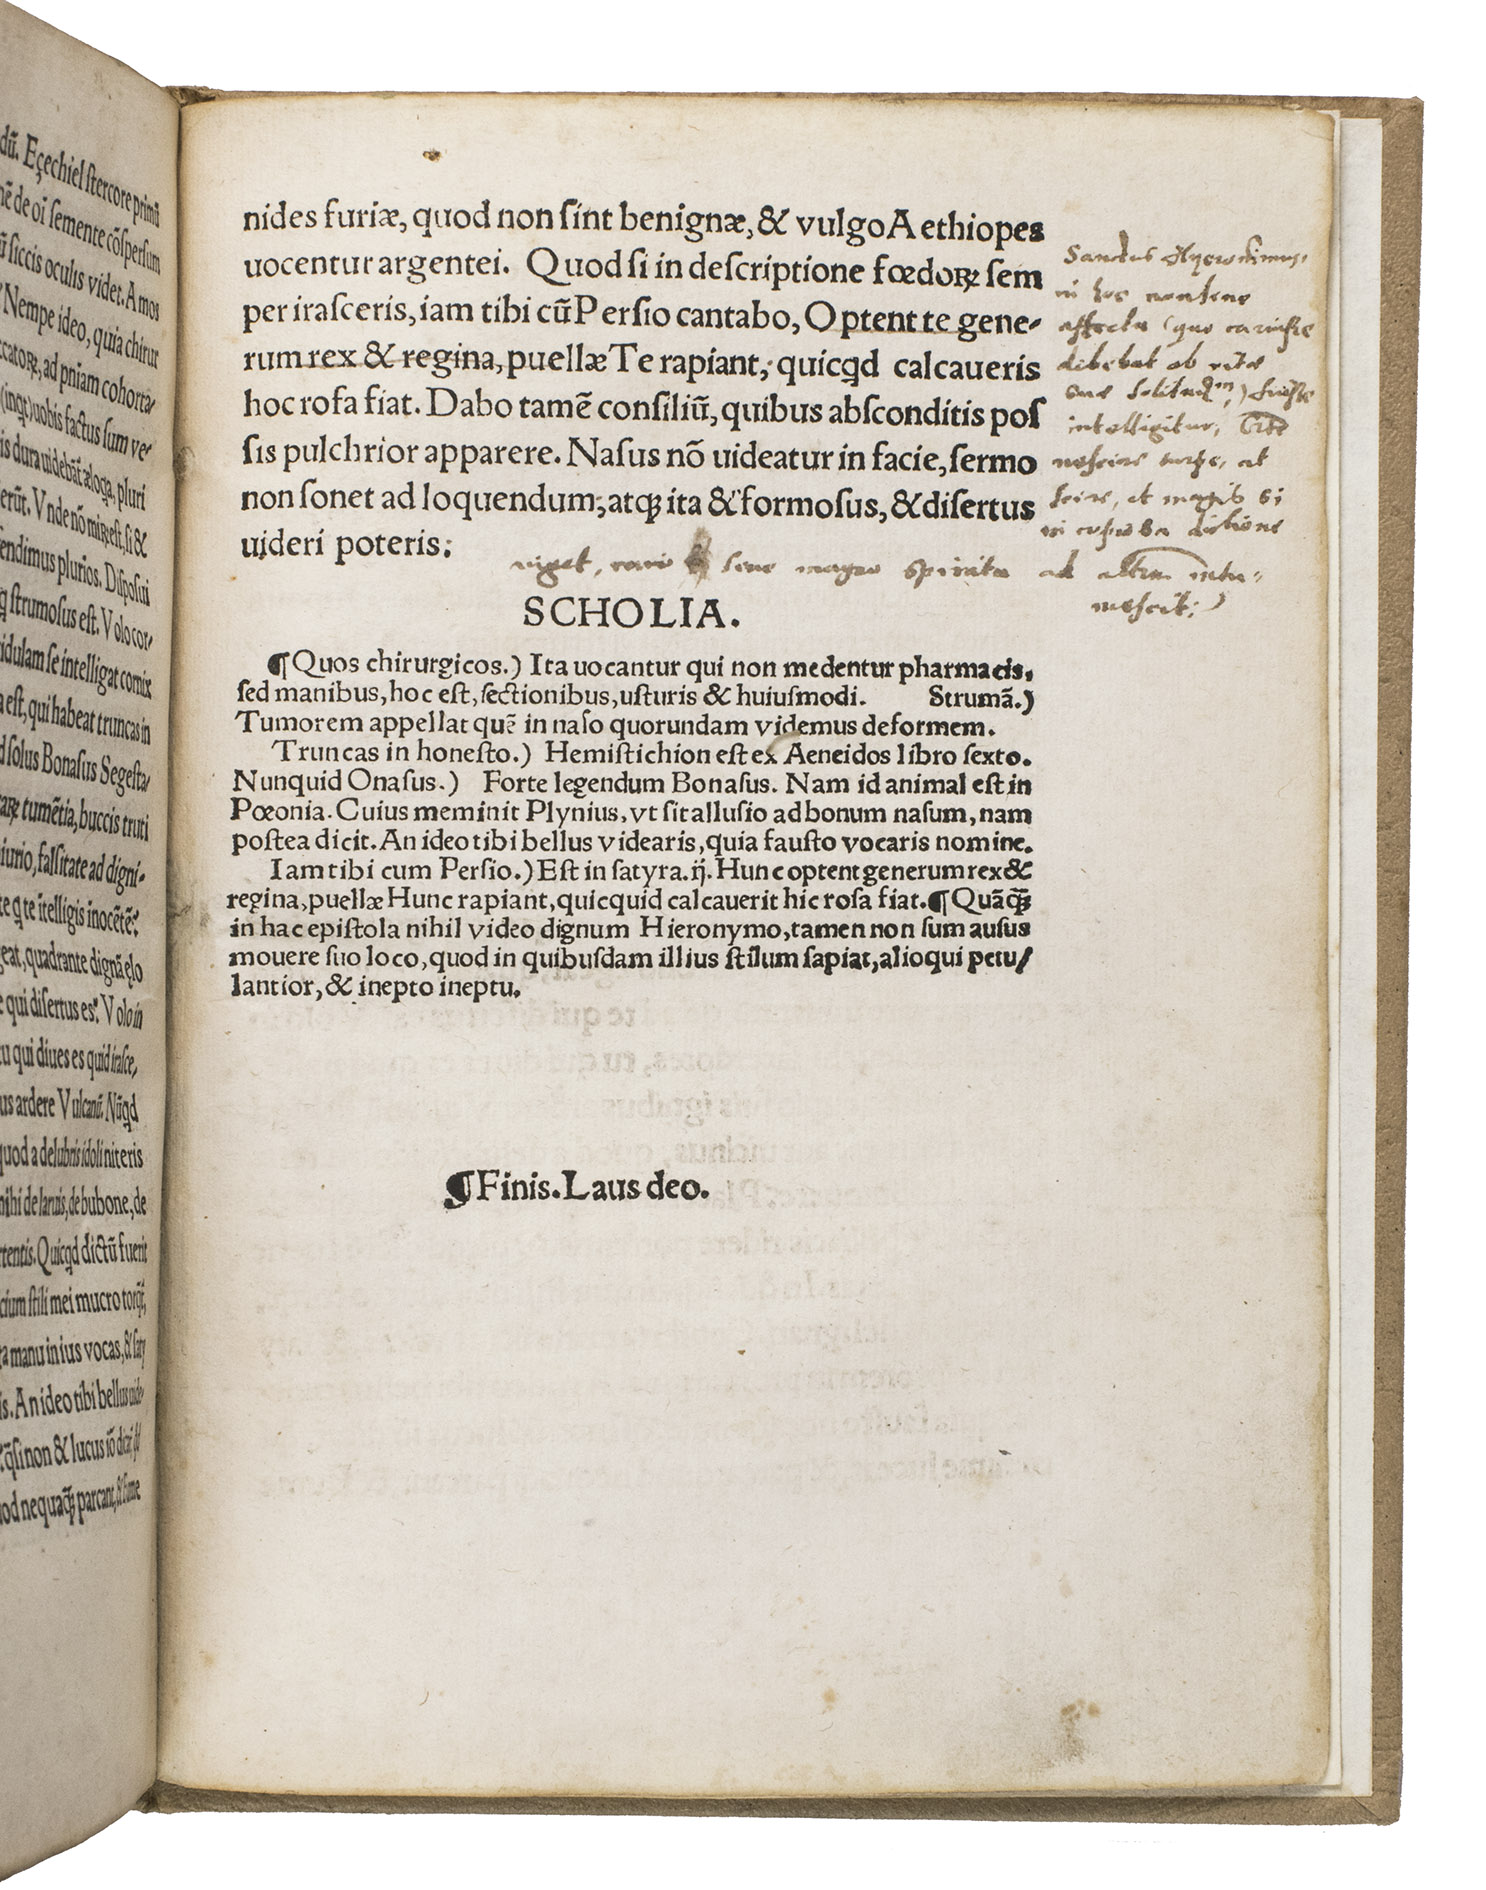 dũ. Eçechiel stercore primũ
nẽ de oĩ semente cõspersum
siccis oculis videt. Amos
Nempe ideo, quia chirur
catoꝝ, ad pniam cohorta-
(inqt) uobis factus sum ve-
is dura uidebãt æloqa, pluri
erũt. Vnde nõ miꝝ est, si &
endimus plurios. Disposui
q strumosus est. Volo cor-
idulam se intelligat cornix
a est, qui habeat truncas in
d solus Bonasus Segesta-
aꝝ tumẽtia, buccis truti
iurio, falsitate ad digni-
te q te ĩtelligis inocẽtẽ?
geat, quadrante dignã elo
e qui disertus es? Volo in
tu qui diues es quid irasce,
us ardere Vulcanũ. Nũqd
quod a delubris idoli niteris
mihi de laruis, de bubone, de
rtentis. Quicqd dictũ fuerit
cium stili mei mucro torqt,
ta manu in ius vocas, & saty
is. An ideo tibi bellus uide-
qsi non & lucus iõ dicat
od nequaꝗ̃ parcant, & fume
nides furiæ, quod non sint benignæ, & vulgo Aethiopes
uocentur argentei. Quod si in descriptione fœdoꝝ sem
per irasceris, iam tibi cũ Persio cantabo, Optent te gene-
rum rex & regina, puellæ Te rapiant, quicqd calcaueris
hoc rosa fiat. Dabo tamẽ consiliũ, quibus absconditis pos
sis pulchrior apparere. Nasus nõ uideatur in facie, sermo
non sonet ad loquendum; atqꝫ ita & formosus, & disertus
uideri poteris:
Sanctus Hyeronimus,
in hoc
affectu (quo
debebat ob vitæ
suæ
intelligitur,
nescire turpe, at
scire, et magis si
in dictione
viget, sine magno spiritu ad
SCHOLIA.
¶Quos chirurgicos.) Ita uocantur qui non medentur pharmacis,
sed manibus, hoc est, sectionibus, usturis & huiusmodi. Strumã.)
Tumorem appellat quẽ in naso quorundam videmus deformem.
Truncas in honesto.) Hemistichion est ex Aeneidos libro sexto.
Nunquid Onasus.) Forte legendum Bonasus. Nam id animal est in
Pœonia. Cuius meminit Plynius, vt sit allusio ad bonum nasum, nam
postea dicit. An ideo tibi bellus videaris, quia fausto vocaris nomine.
Iam tibi cum Persio.) Est in satyra. ij. Hunc optent generum rex &
regina, puellæ Hunc rapiant, quicquid calcauerit hic rosa fiat. ¶ Quãꝗ̃
in hac epistola nihil video dignum Hieronymo, tamen non sum ausus
mouere suo loco, quod in quibusdam illius stilum sapiat, alioqui petu/
lantior, & inepto ineptu.
¶Finis. Laus deo.